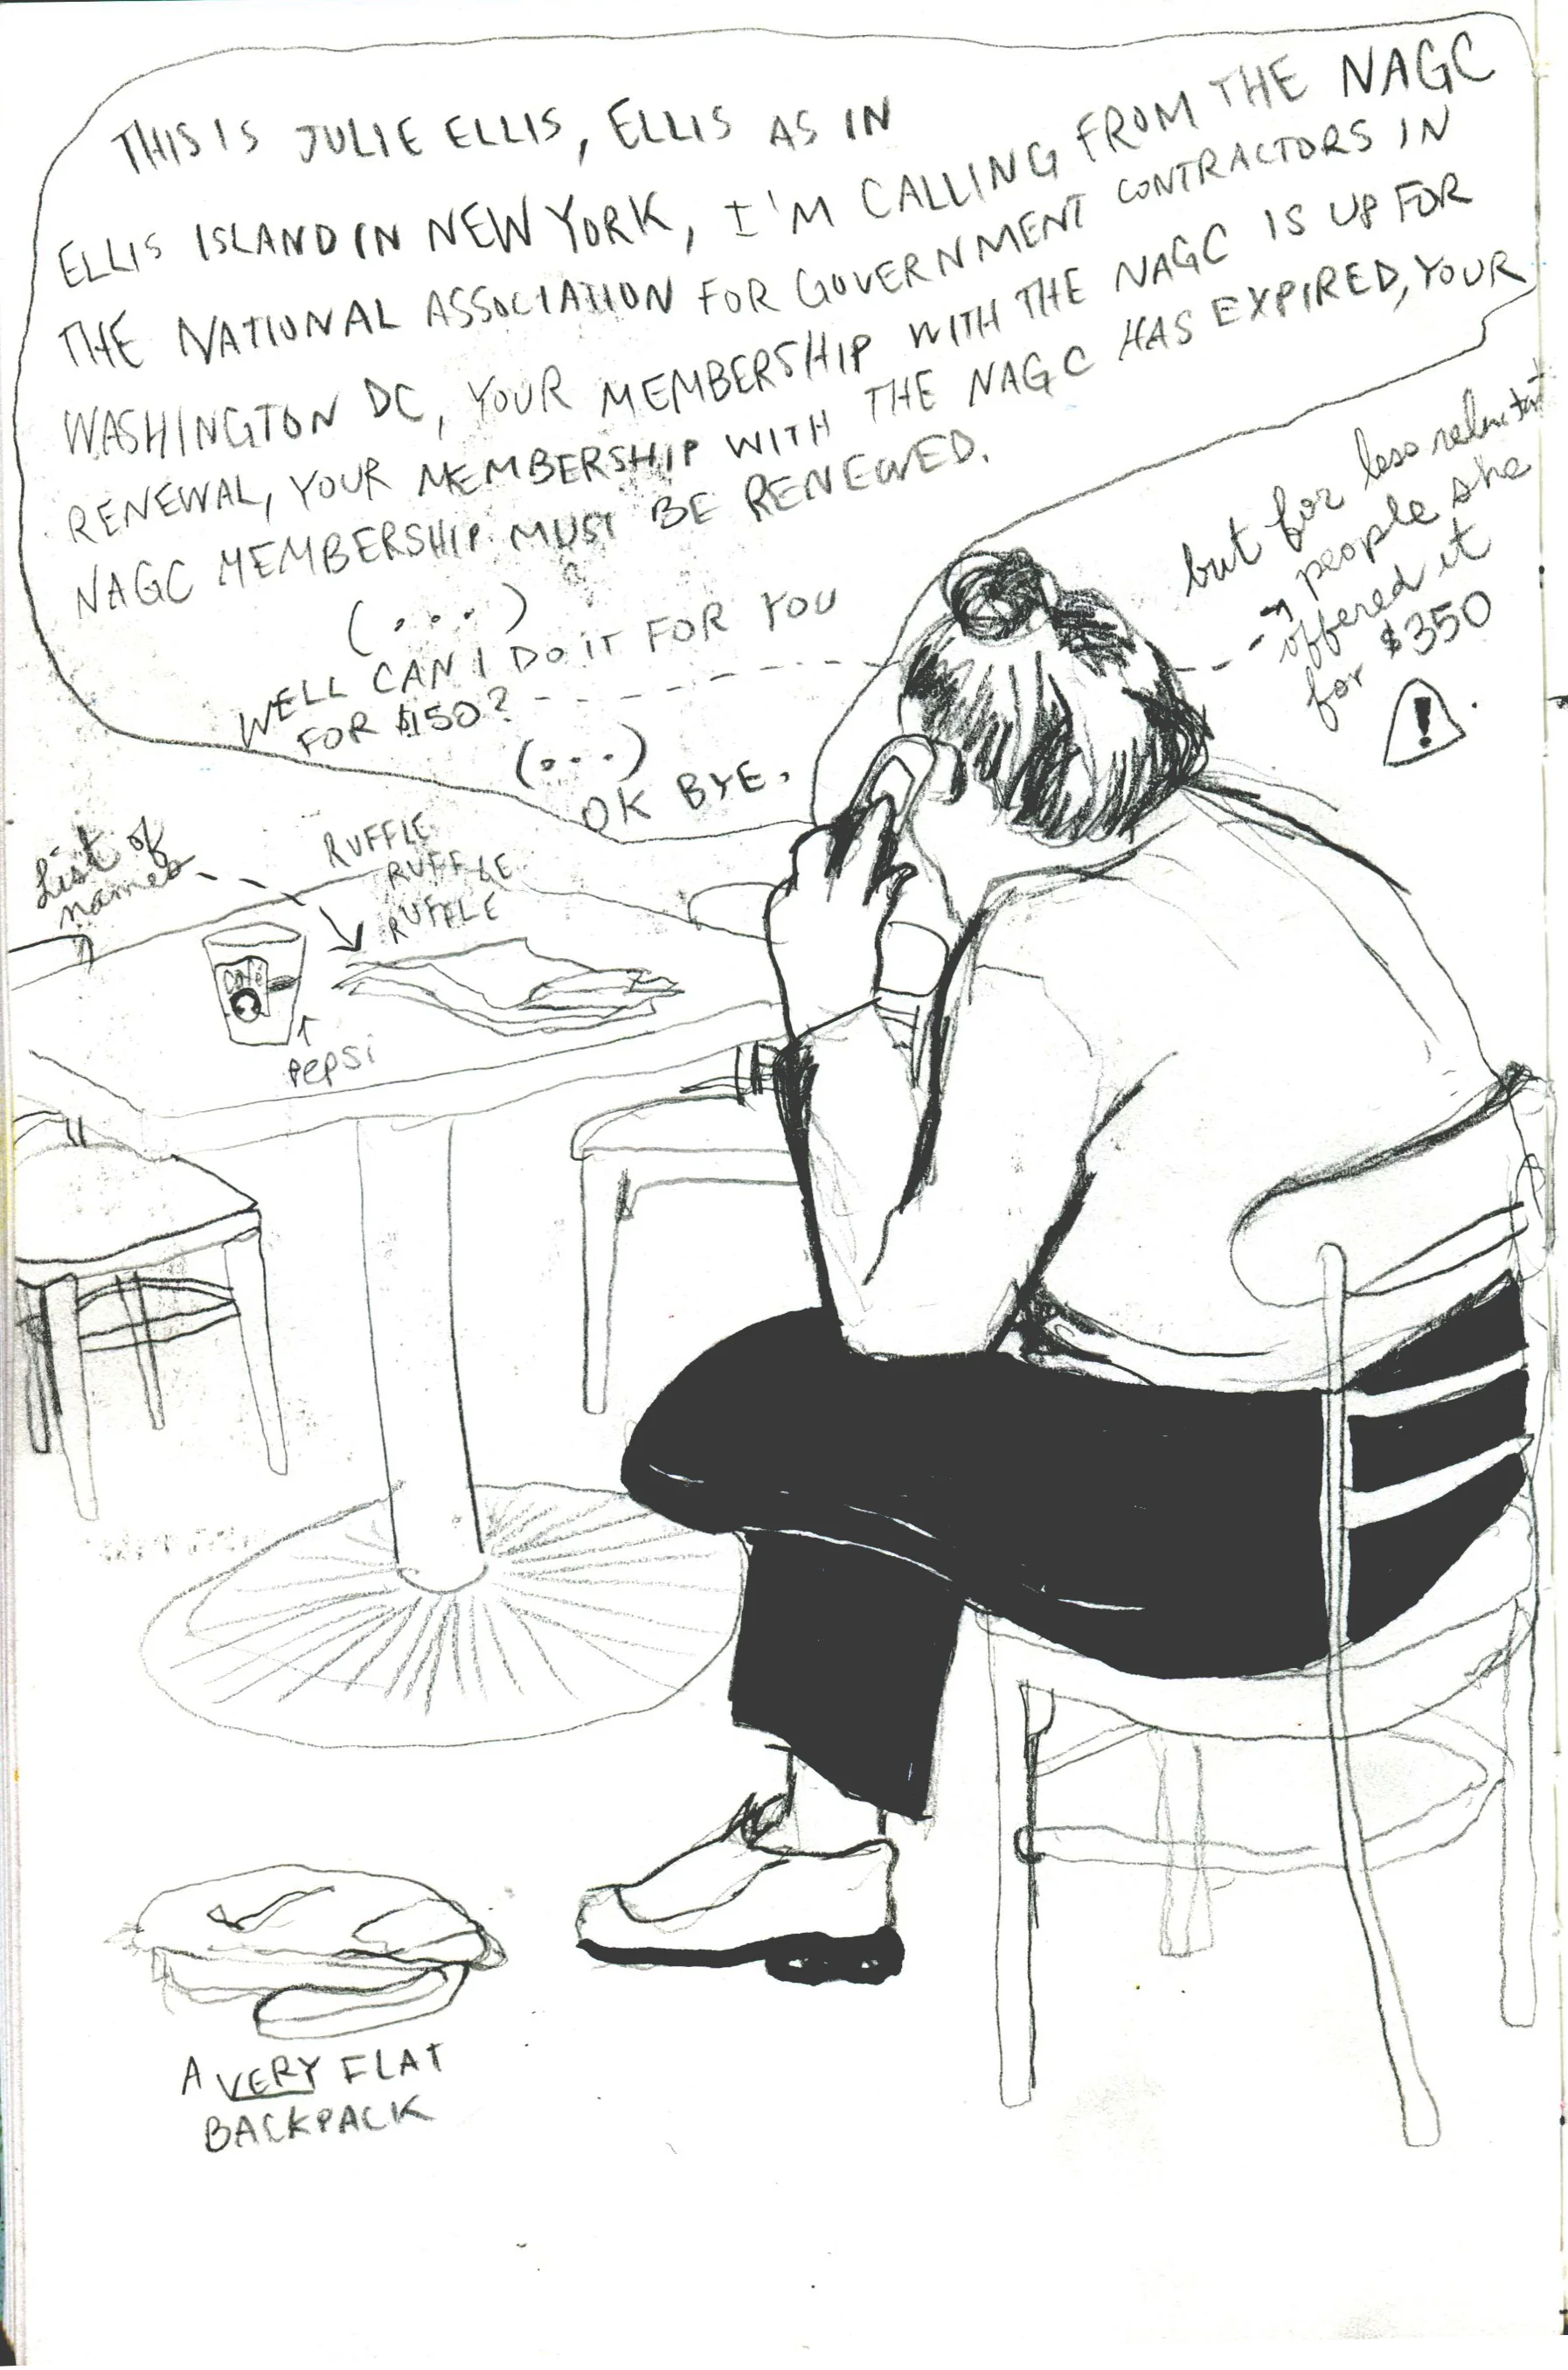 THIS IS JULIE ELLIS, ELLIS AS IN
ELLIS ISLAND IN NEW YORK, I'M CALLING FROM THE NAGC
THE NATIONAL ASSOCIATION FOR GOVERNMENT CONTRACTORS IN
WASHINGTON DC, YOUR MEMBERSHIP WITH THE NAGC IS UP FOR
RENEWAL, YOUR MEMBERSHIP WITH THE NAGC HAS EXPIRED, YOUR
NAGC MEMBERSHIP MUST BE RENEWED.
(...)
WELL CAN I DO IT FOR YOU
FOR $150?
(...)
OK BYE.
but for less reluctant
people she
offered it
for $350
!
List of
names
RUFFLE
RUFFLE
RUFFLE
pepsi
A VERY FLAT
BACKPACK